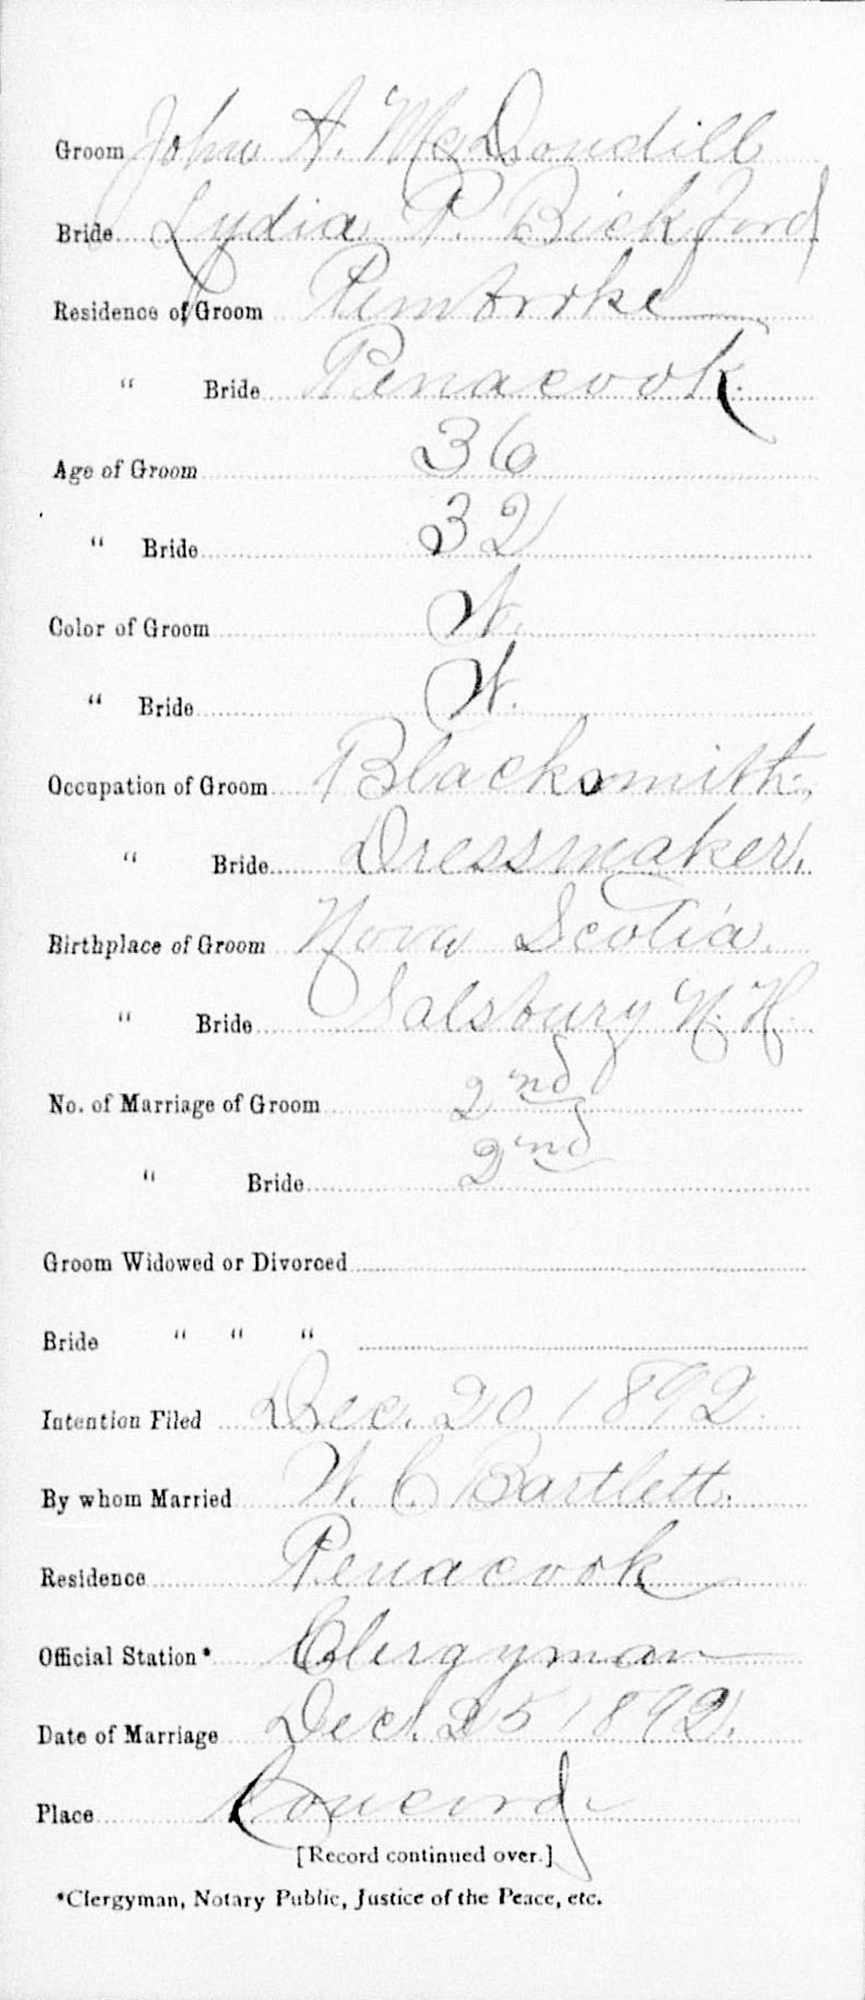 Groom John A. McDondill
Bride Lydia P. Bickford
Residence of Groom Pembroke
" Bride Penacook.
Age of Groom 36
" Bride 32
Color of Groom W.
" Bride W.
Occupation of Groom Blacksmith.
" Bride Dressmaker.
Birthplace of Groom Nova Scotia.
" Bride Salsbury N. H.
No. of Marriage of Groom 2nd
" Bride 2nd
Groom Widowed or Divorced
Bride " " "
Intention Filed Dec. 20 1892.
By whom Married W. C. Bartlett.
Residence Penacook
Official Station* Clergyman
Date of Marriage Dec. 25 1892.
Place Concord
[Record continued over.]
*Clergyman, Notary Public, Justice of the Peace, etc.